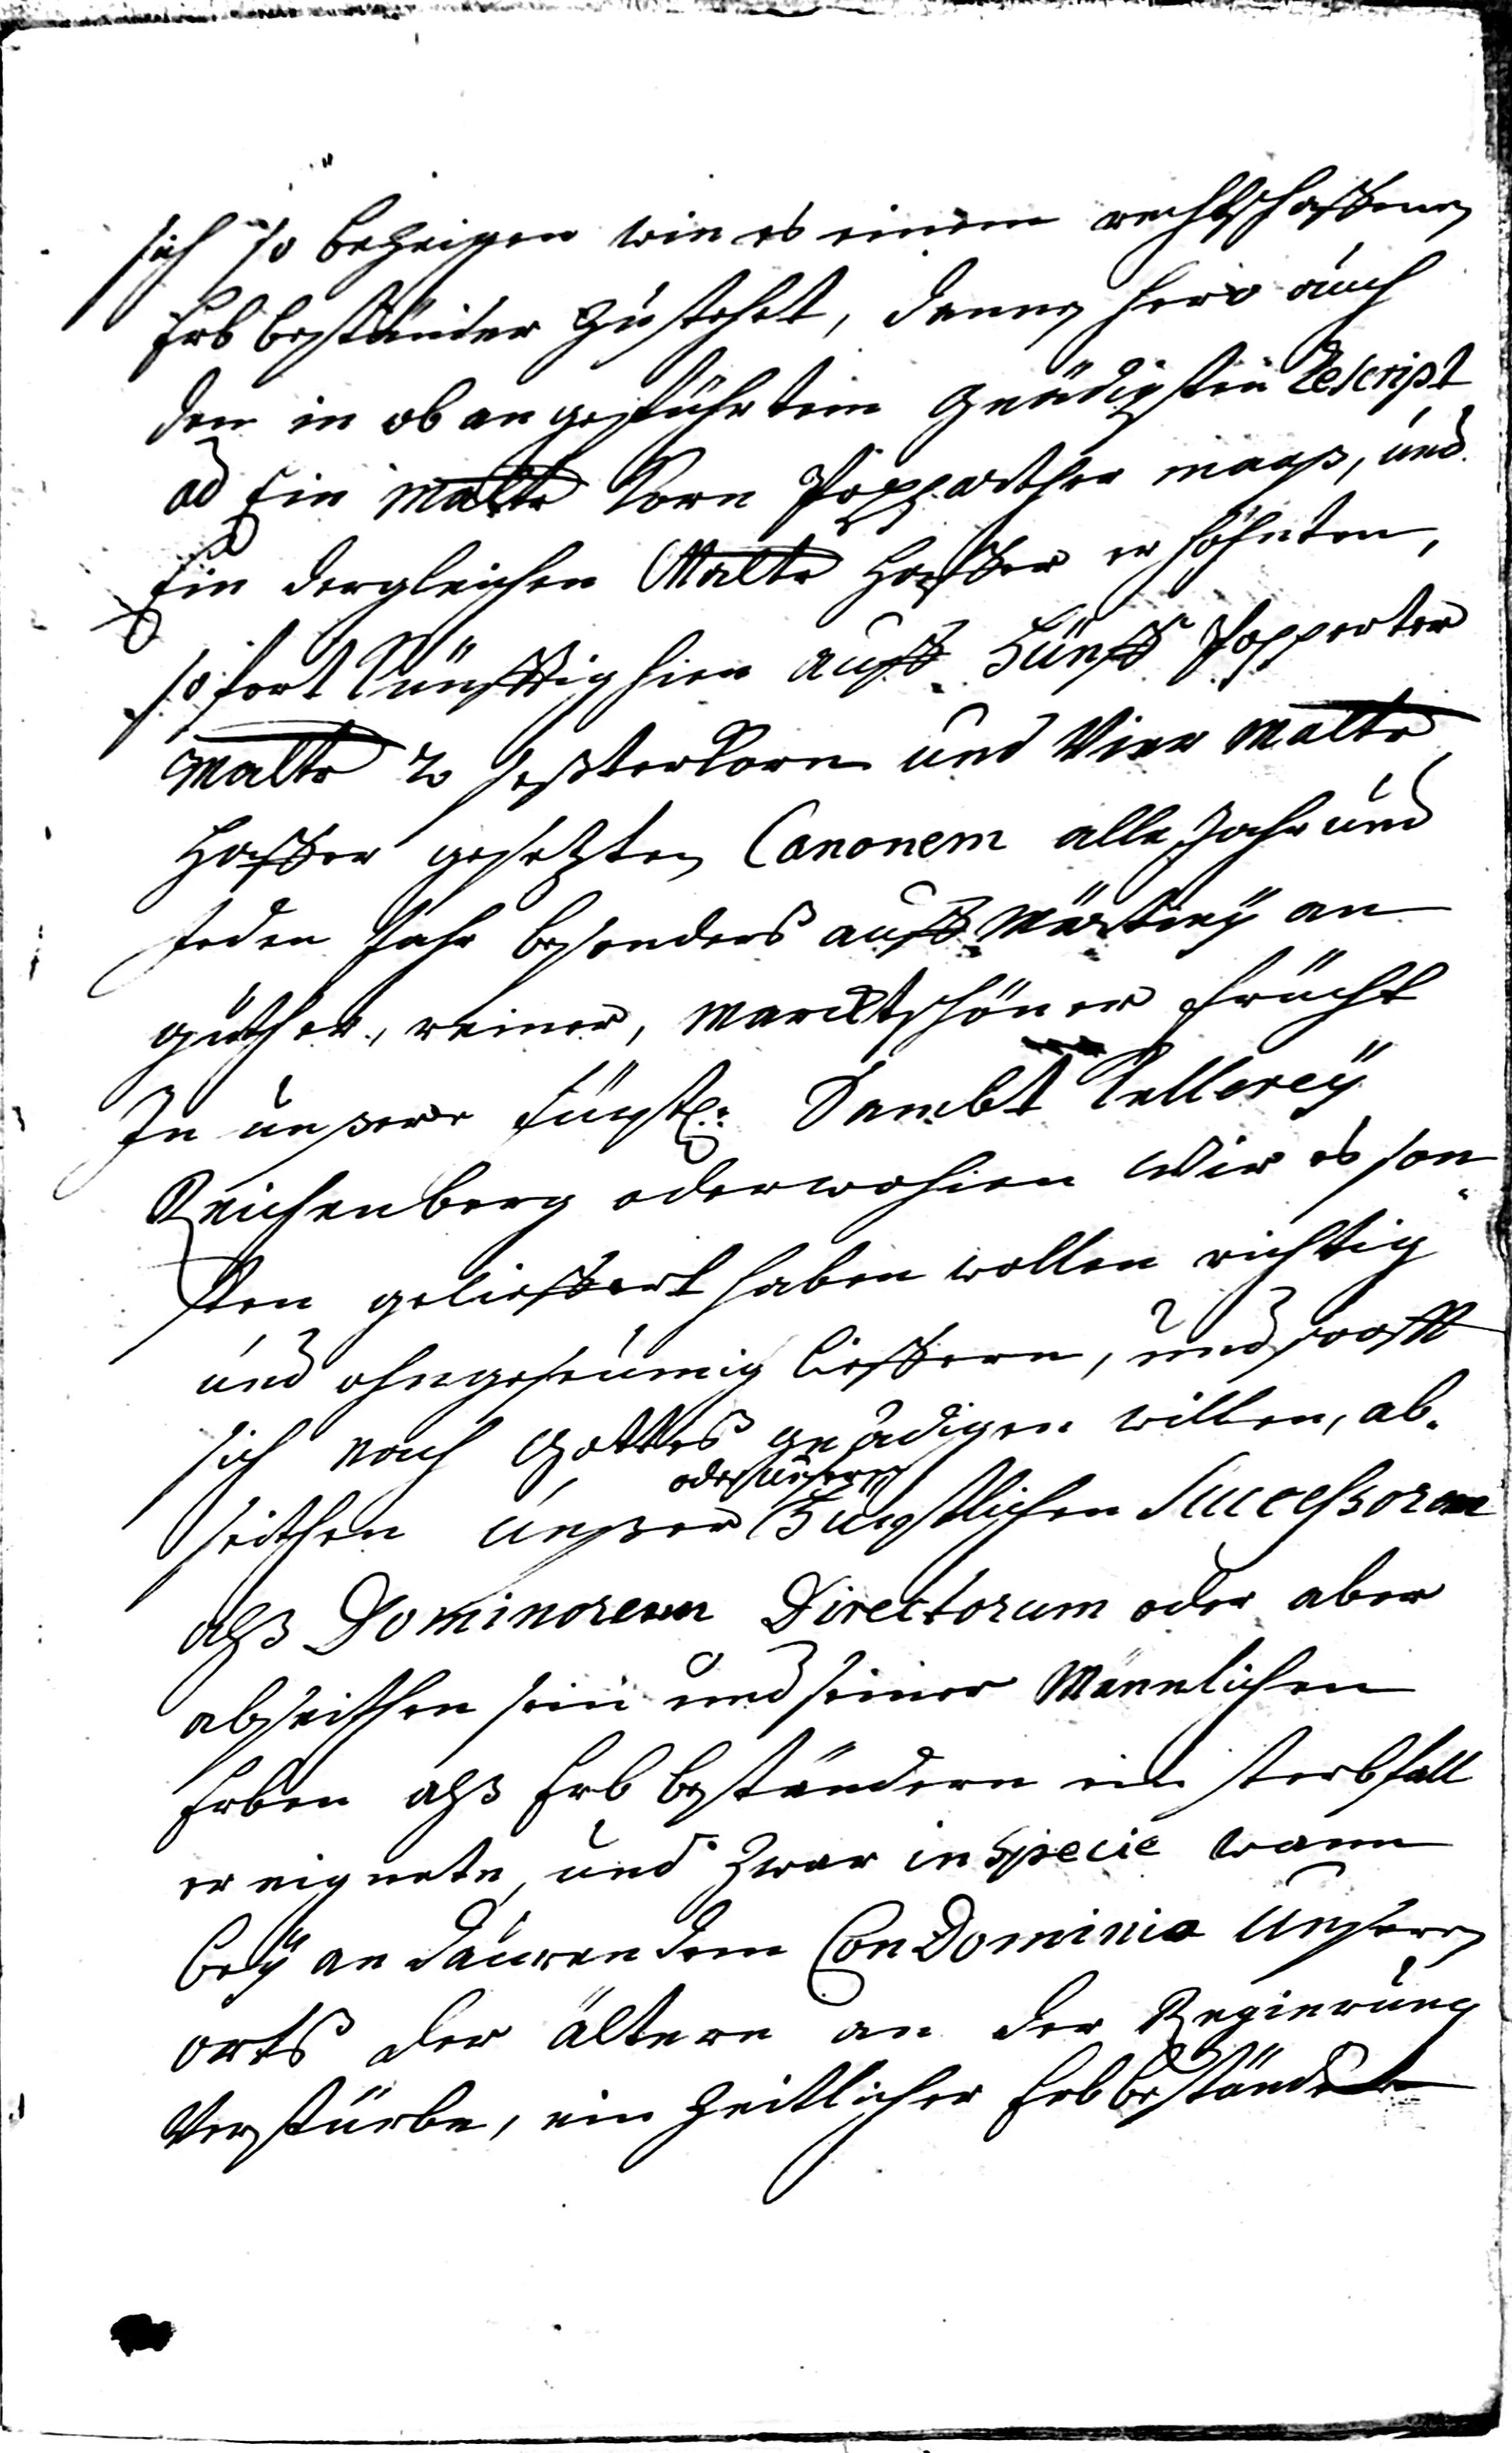 sich so bezeigen wie es einem rechtschaffenen
Erbbeständer zustehet, dannenhero auch
den in obangeführtem gnädigsten Rescript
ad Ein Maltr Korn Popparther maaß, und
Ein dergleichen Maltr Haffer erhöheten,
sofort künfftighien auff Fünff Popperter
Maltr 2 sesterkorn und Vier Maltr
Haffer gesetzten Canonem alle Jahr und
Jeden Jahr besonders auff Martiny an
guther, reiner, marcktschöner frücht
In unserer fürstl: Sambt Kellerey
Reichenberg oder wohien Wir es son-
sten geliefferet haben wollen richtig
und ohngesäumig lieffern, und so offt
sich nach Gottes gnädigen willen, ab-
seithen unser oder unseren Fürstlichen Successorum
alß Dominorum Directorum oder aber
abseithen sein und seiner Männlichen
Erben alß Erbbeständern ein sterbfall
ereignete, und zwar in specie wann
bey andaurendem ConDominio Unseren
orts der ältere an der Regierung
Verstürbe, ein zeitlicher Erbbeständer